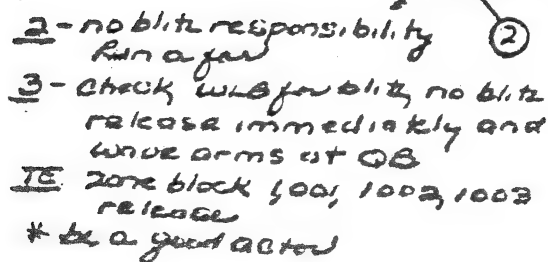 2 - no blitz responsibility
Run a far
2
3 - Check WLB for blitz, no blitz
release immediately and
wave arms at QB
TE zone block 1001, 1002, 1003
release
* be a good actor